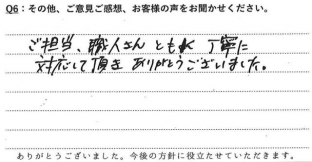 Q6：その他、ご意見ご感想、お客様の声をお聞かせください。
ご担当、職人さんとも水丁寧に
対応して頂きありがとうございました。
ありがとうございました。今後の方針に役立たせていただきます。